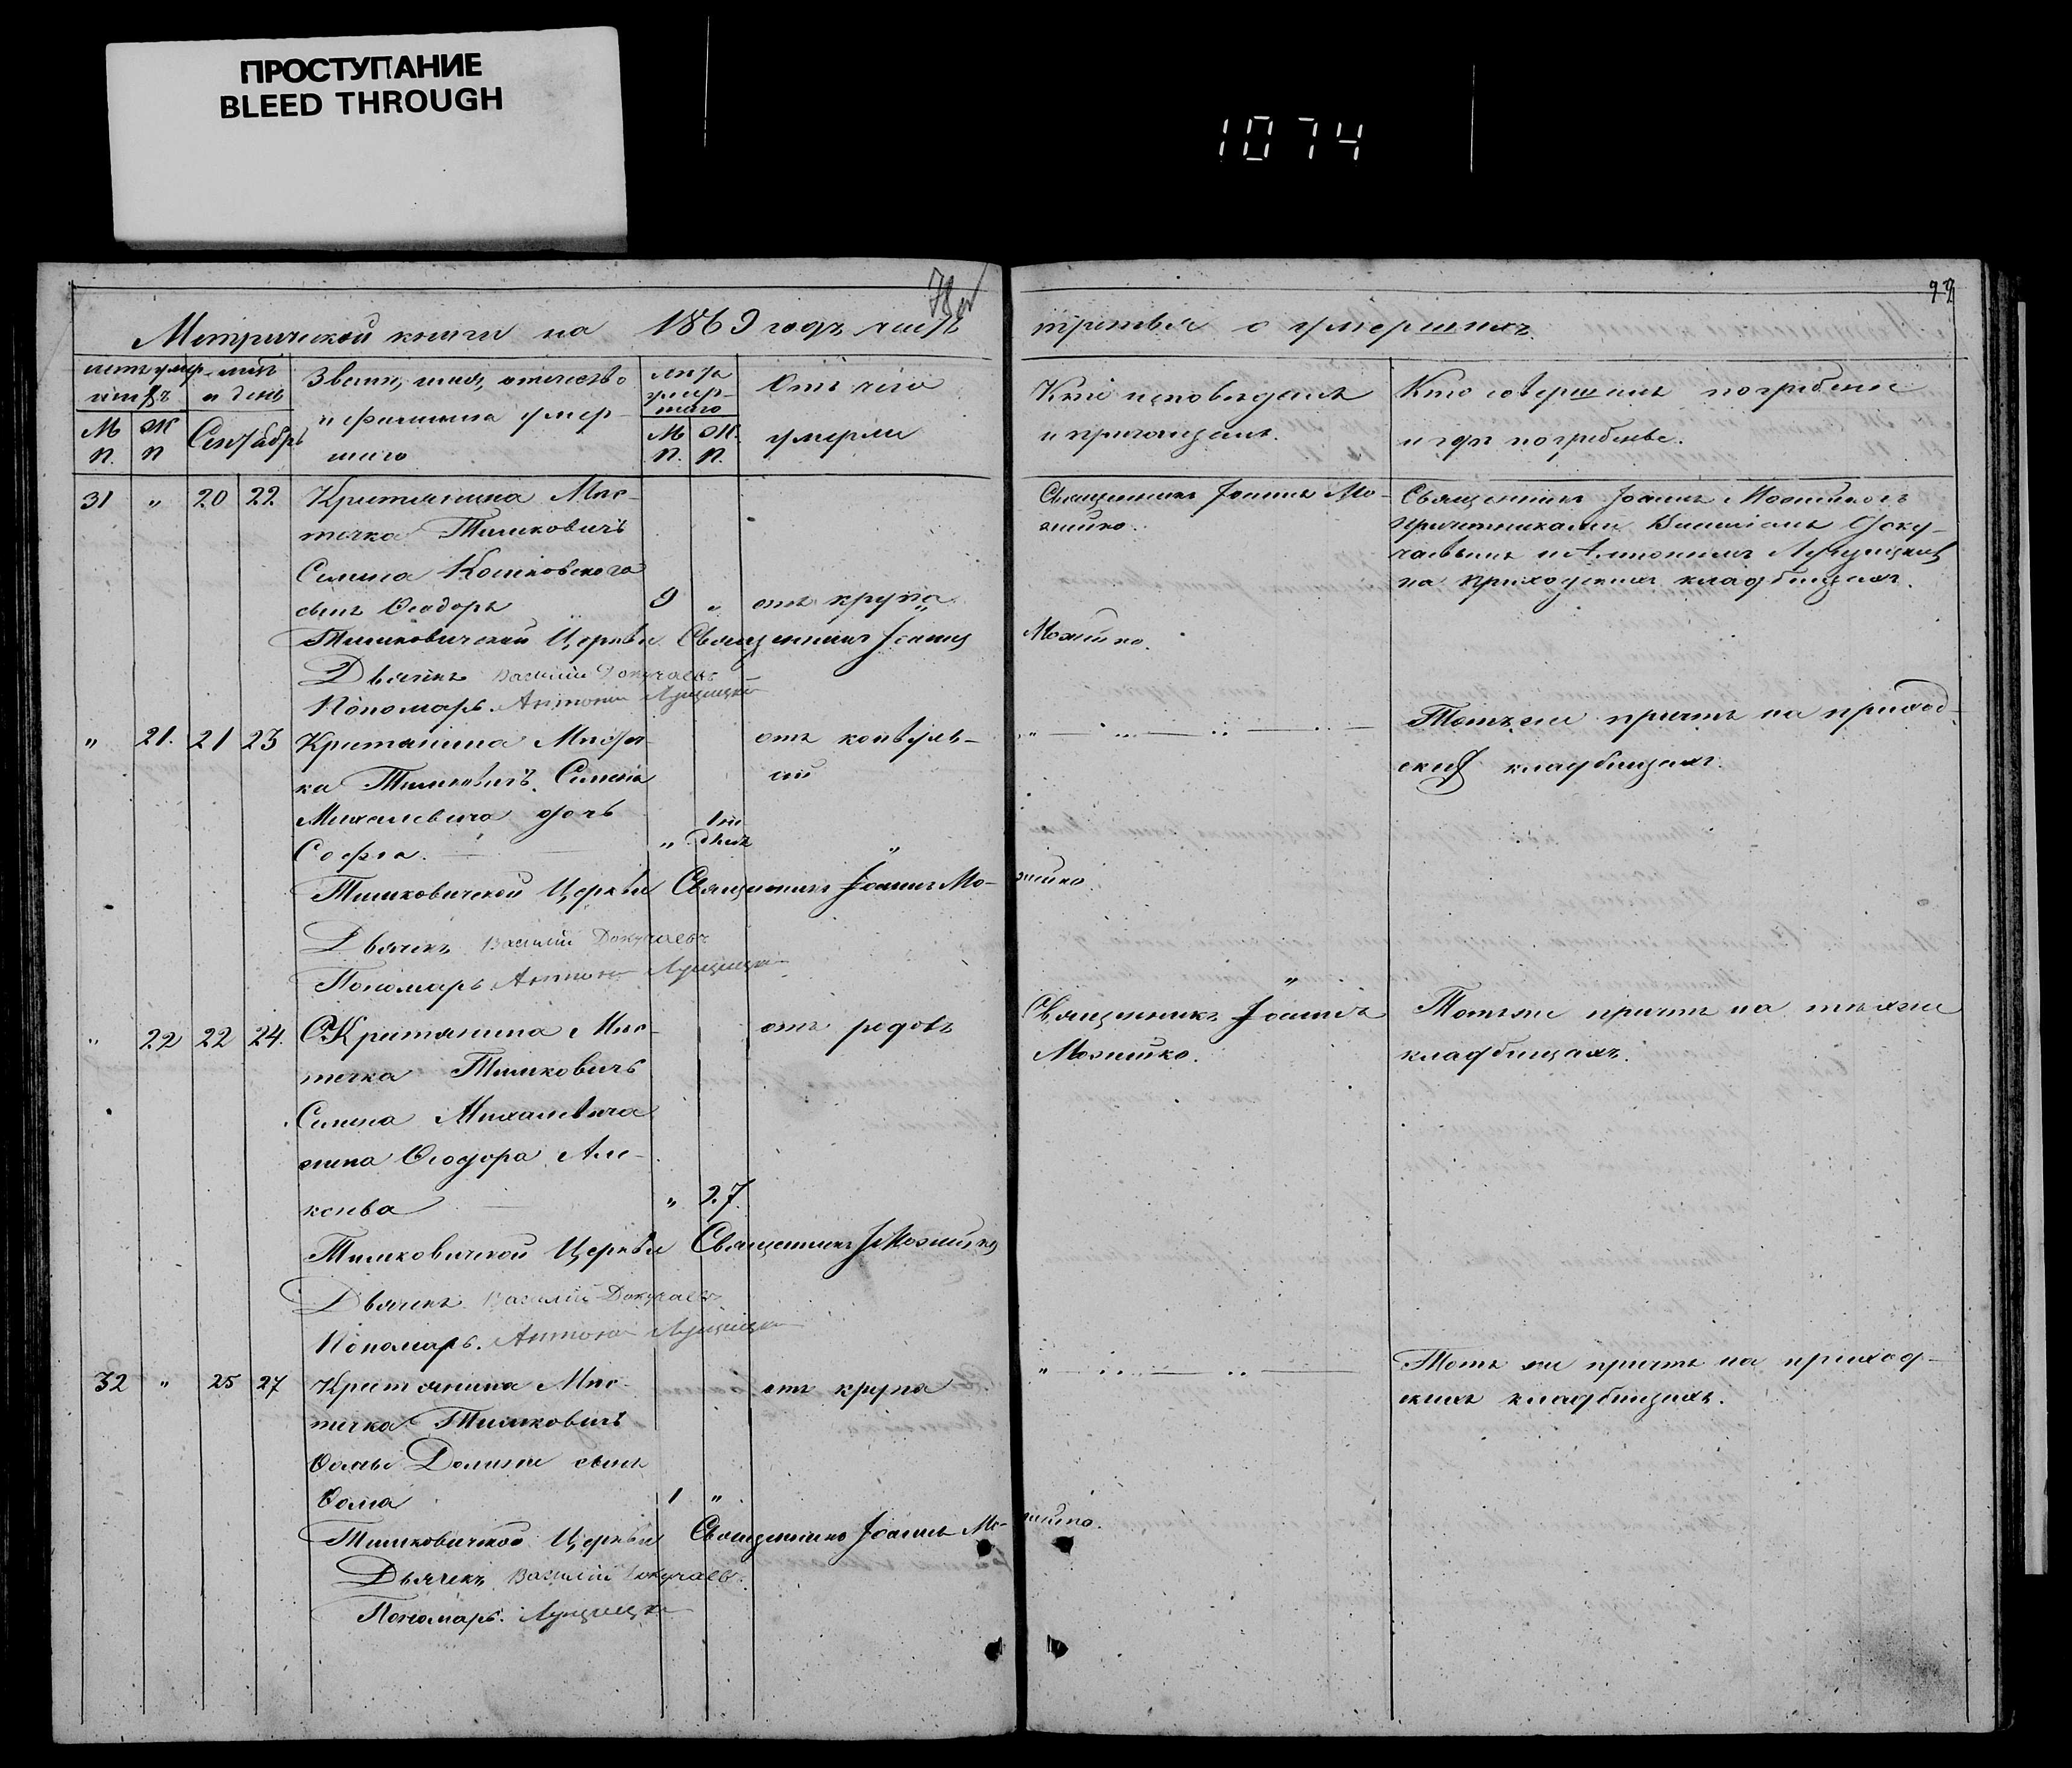 ПРОСТУПАНИЕ
BLEED THROUGH
1074
78 об
Метрической книги на 1869 годъ часть
третья о умершихъ.
Званіе, имя, отчество
и фамилия умер-
шаго
М п. Ж п
Сентябрь
М п. Ж. п.
Отъ чего
умерли
Кто исповедалъ
и пріощалъ.
Кто совершалъ погребеніе
и гдѣ погребены.
31 " 20 22 Крестьянина Мѣс-
течка Тимковичъ
Семена Кошковского
сынъ Ѳеодоръ 9 " отъ крупа
Священникъ Іоаннъ Мо-
жейко.
Священникъ Іоаннъ
причетниками Василіемъ Доку-
чаевымъ и Антоніемъ
на приходскихъ кладбищахъ.
Тимковичской Церкви Священникъ Іоаннъ Можейко.
Дьячекъ Василій Докучаевъ
Пономарь. Антоній Лущицкій
" 21. 21 23 Крестьянина Мѣстеч-
ка Тимковичъ, Семена
Михалевича дочь
София. " 1 дней
Тотъ же причтъ на приход-
скихъ кладбищахъ.
Тимковичской Церкви Священникъ Іоаннъ Мо-жейко
Дьячекъ Василій Докучаевъ
Пономарь Антоній Лущицкій
" 22 22 24. Крестьянина Мѣс-
течка Тимковичъ
Семена Михалевича
жена Ѳеодора Але-
ксѣева " 27.
отъ родовъ
Священникъ Іоаннъ
Можейко.
Тотъ же причтъ на тѣхже
кладбищахъ.
Тимковичской Церкви Священникъ І Можейко
Дьячекъ Василій Докучаевъ
Пономарь. Антоній Лущицкій
32 " 25 27 Крестьянина Мѣс-
течка Тимковичъ
Ѳомы сынъ
Ѳома 1 "
отъ крупа
Тотъ же причтъ на приход-
скихъ кладбищахъ.
Тимковичской Церкви Священникъ Іоаннъ Мо-жейко.
Дьячекъ Василій Докучаевъ.
Пономарь. Лущицкій